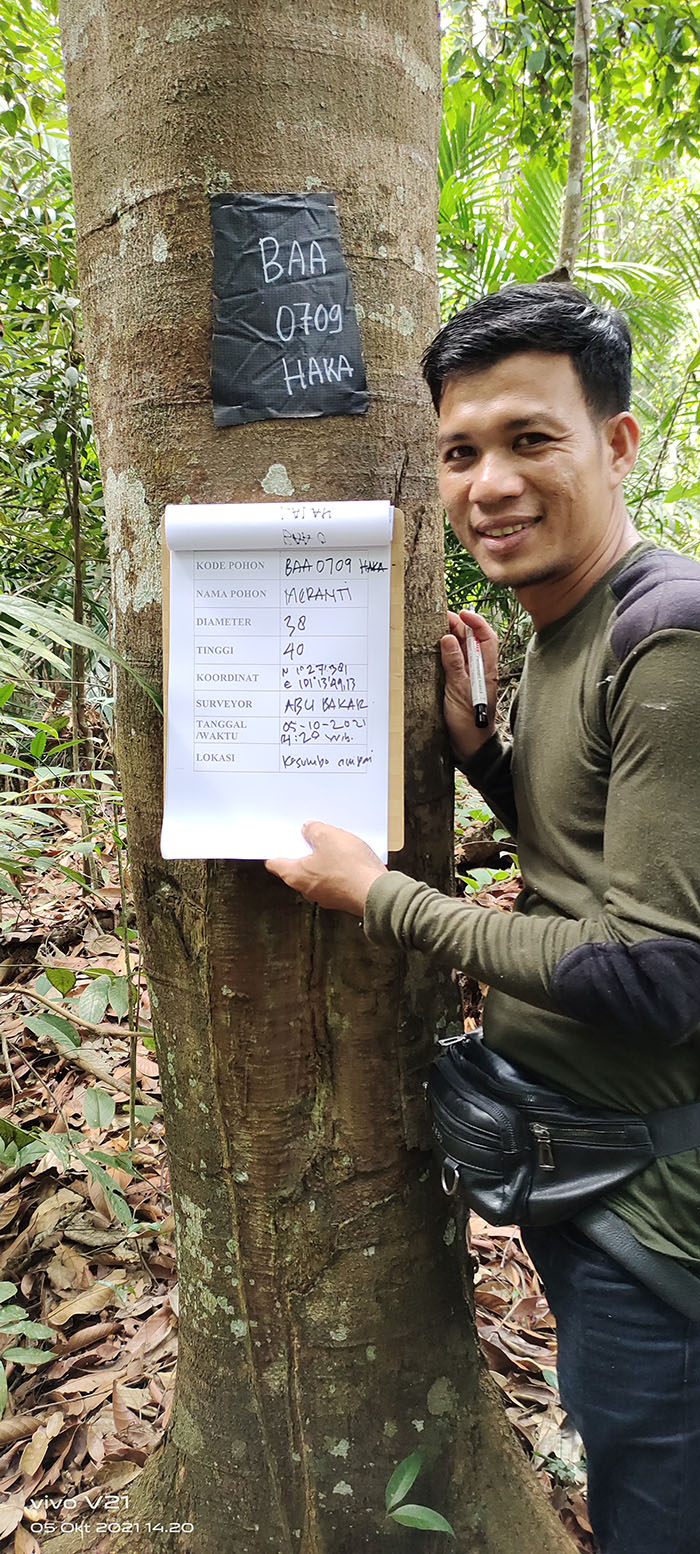 BAA
0709
HAKA
KODE POHON BAA 0709 HAKA
NAMA POHON MERANTI
DIAMETER 38
TINGGI 40
KOORDINAT N 1°27'381
E 101°13'49,13
SURVEYOR ABU BAKAR
TANGGAL 05-10-2021
/WAKTU :20 WIB.
LOKASI Kasumbo
vivo V21
05 Okt 2021 14.20